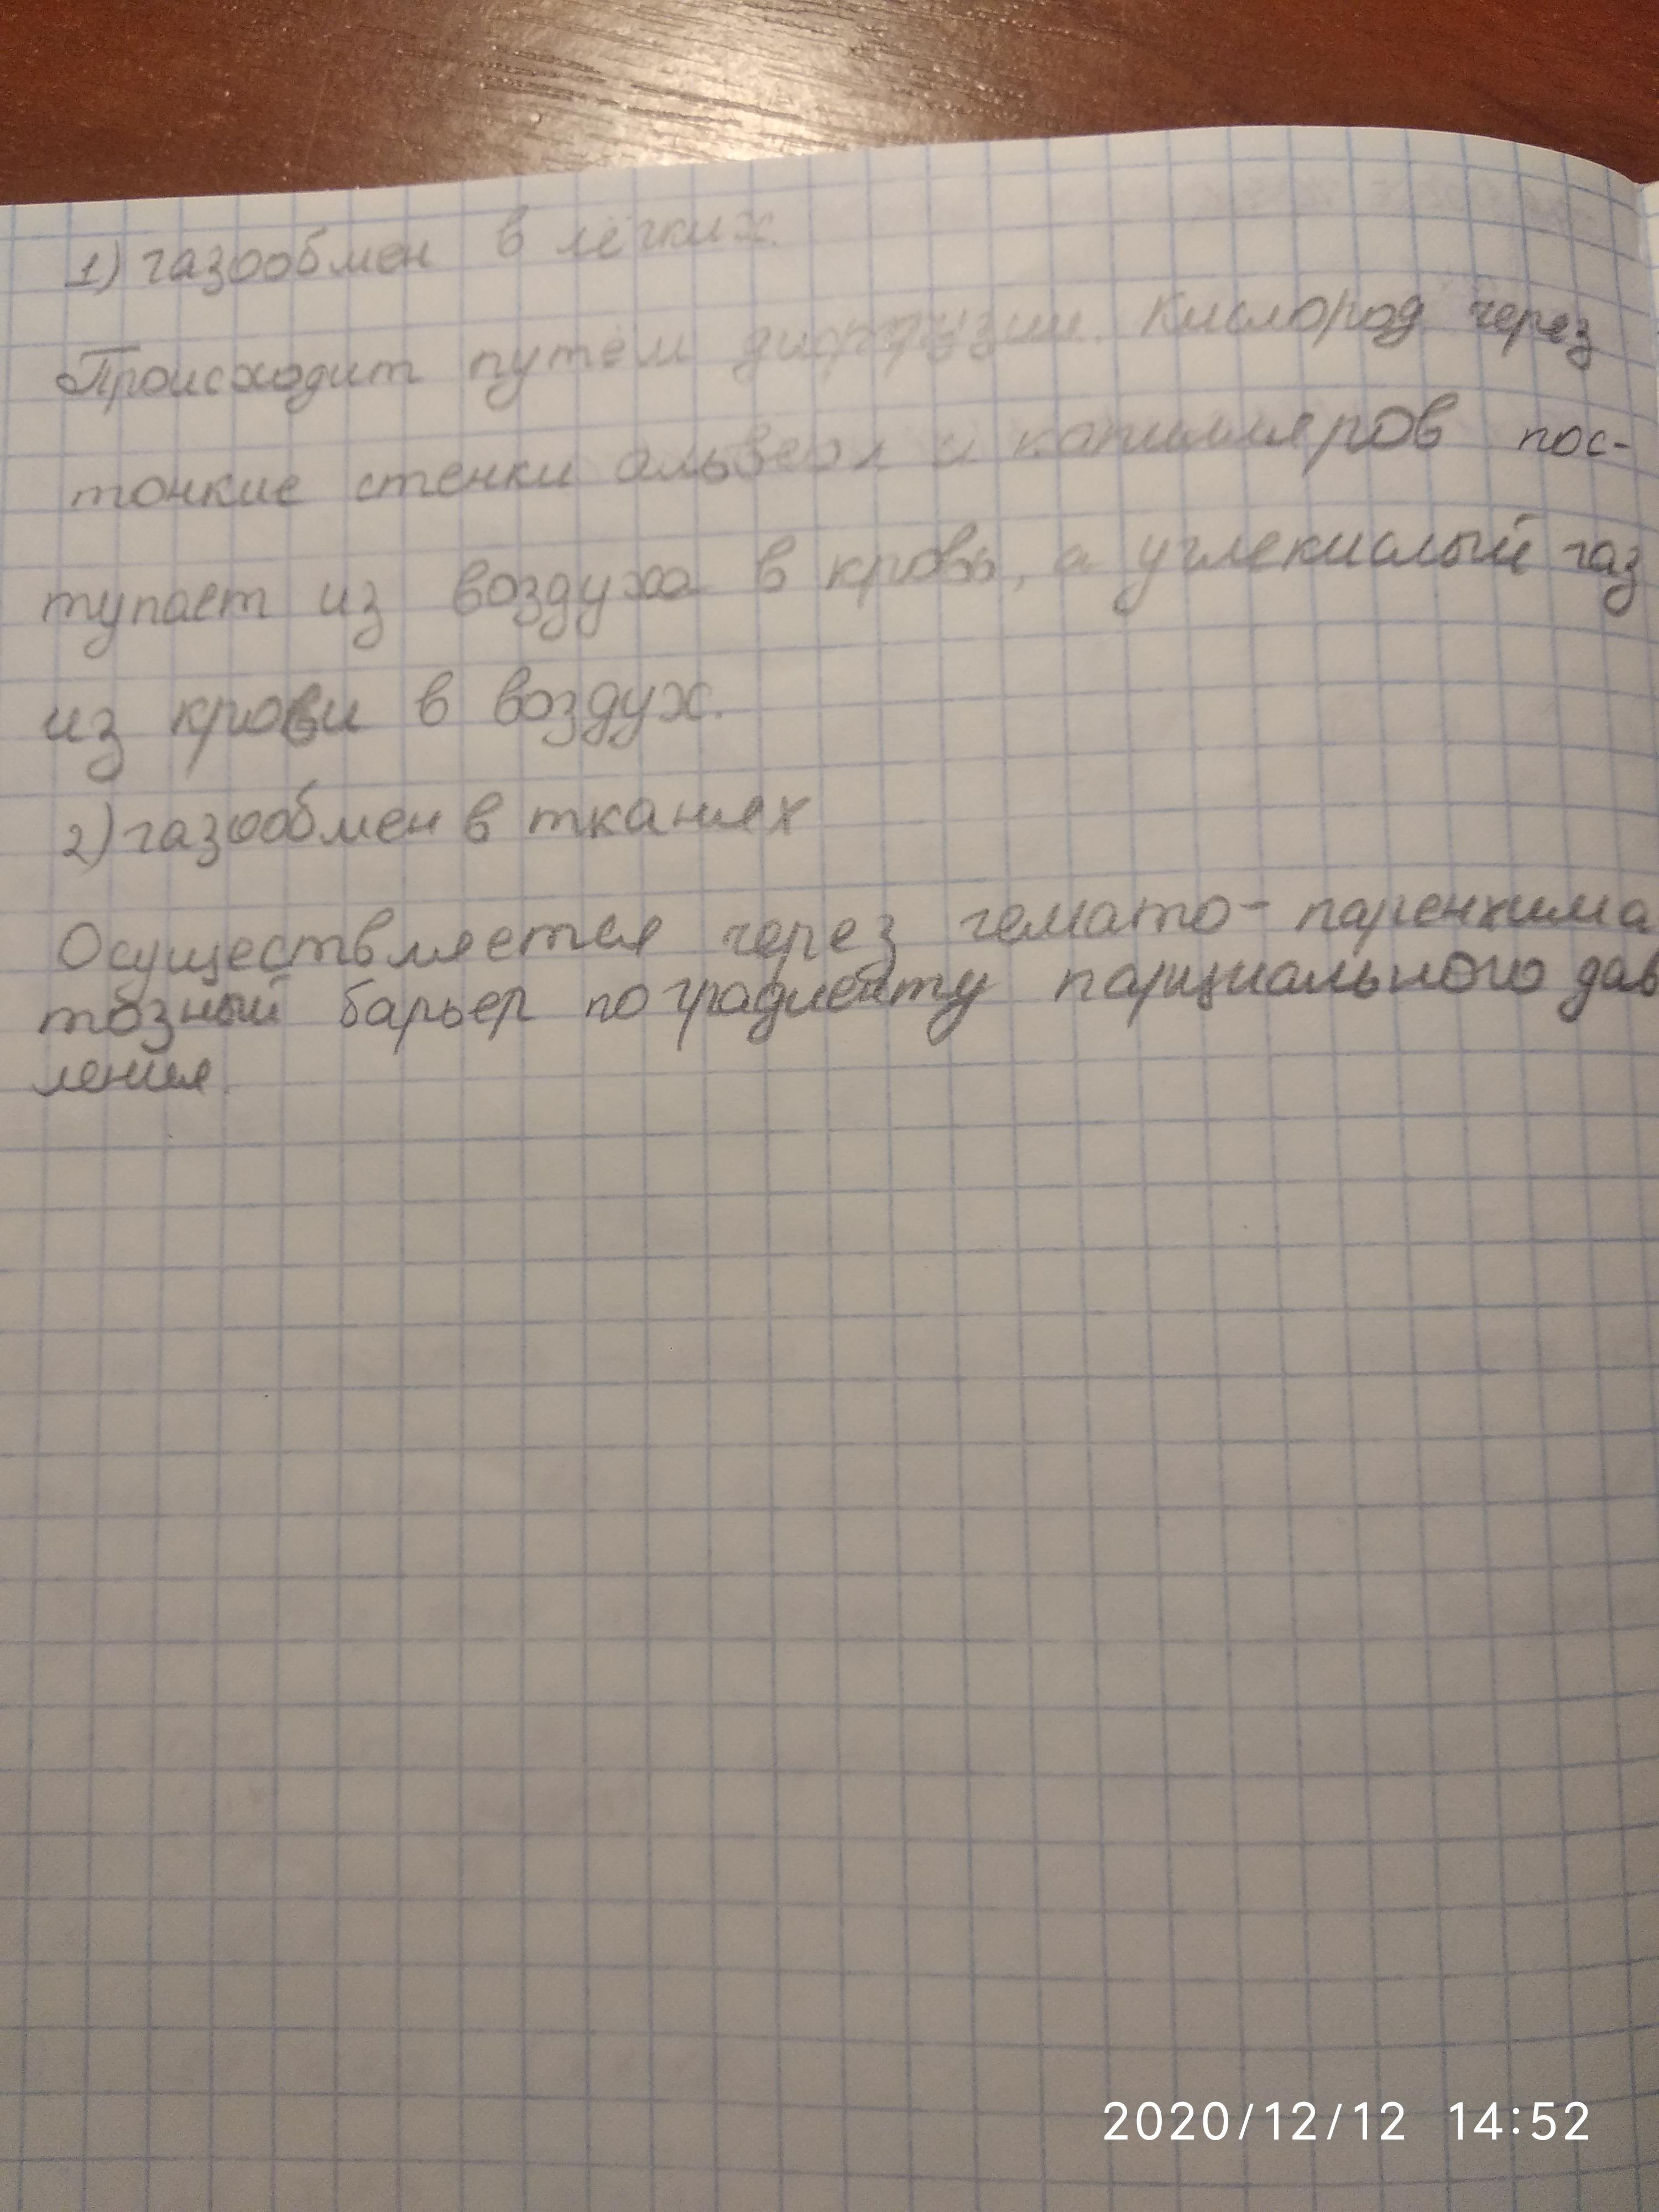 1) газообмен в лёгких.
Происходит путём диффузии. Кислород через
тонкие стенки альвеол и капилляров пос-
тупает из воздуха в кровь, а углекислый газ
из крови в воздух.
2) газообмен в тканях
Осуществляется через гемато-паренхима
тозный барьер по градиенту парциального дав
ления.
2020/12/12 14:52